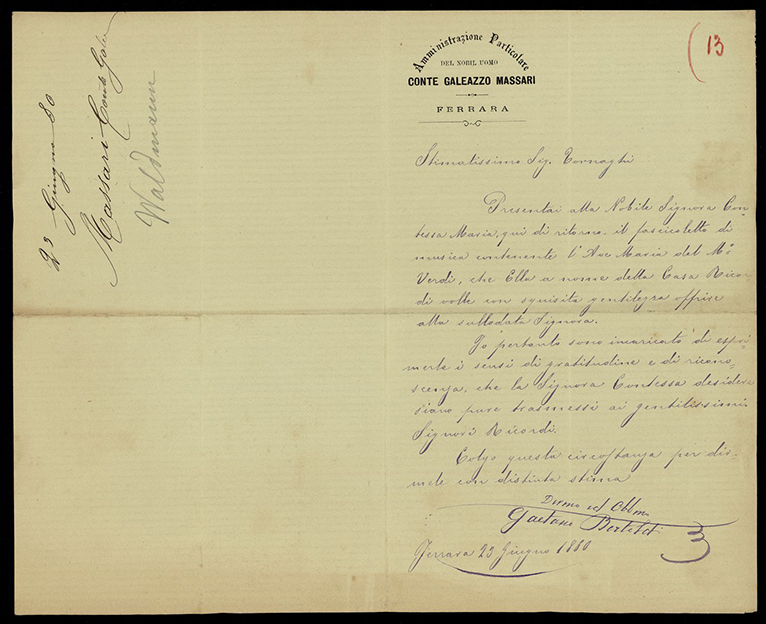 23 Giugno 80
Massari Conte Galeo
Waldmann
13
Amministrazione Particolare
DEL NOBIL UOMO
CONTE GALEAZZO MASSARI
FERRARA
Stimatissimo Sig. Tornaghi
Presentai alla Nobile Signora Con-
tessa Maria, qui di ritorno il fascicoletto di
musica contenente l'Ave Maria del Mo
Verdi, che Ella a nome della Casa Ricor-
di volle con squisita gentilezza offrire
alla sullodata Signora.
Io pertanto sono incaricato di espri-
merle i sensi di gratitudine e di ricono-
scenza, che la Signora Contessa desidera
siano pure trasmessi ai gentilissimi
Signori Ricordi.
Colgo questa circostanza per dir-
mele con distinta stima
Devmo ed Obbmo
Gaetano
Ferrara 23 Giugno 1880